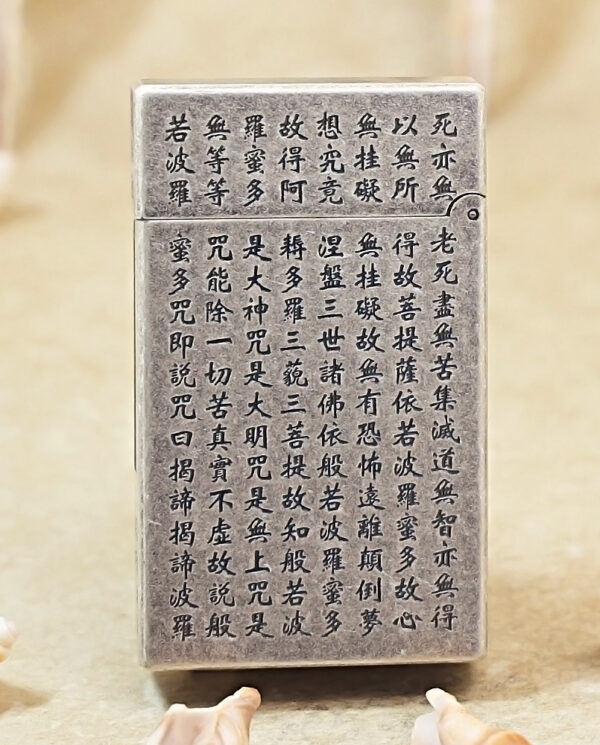 死亦無老死盡無苦集滅道無智亦無得
以無所得故菩提薩依若波羅蜜多故心
無挂礙無挂礙故無有恐怖遠離顛倒夢
想究竟涅盤三世諸佛依般若波羅蜜多
故得阿耨多羅三藐三菩提故知般若波
羅蜜多是大神咒是大明咒是無上咒是
無等等咒能除一切苦真實不虛故說般
若波羅蜜多咒即說咒曰揭諦揭諦波羅